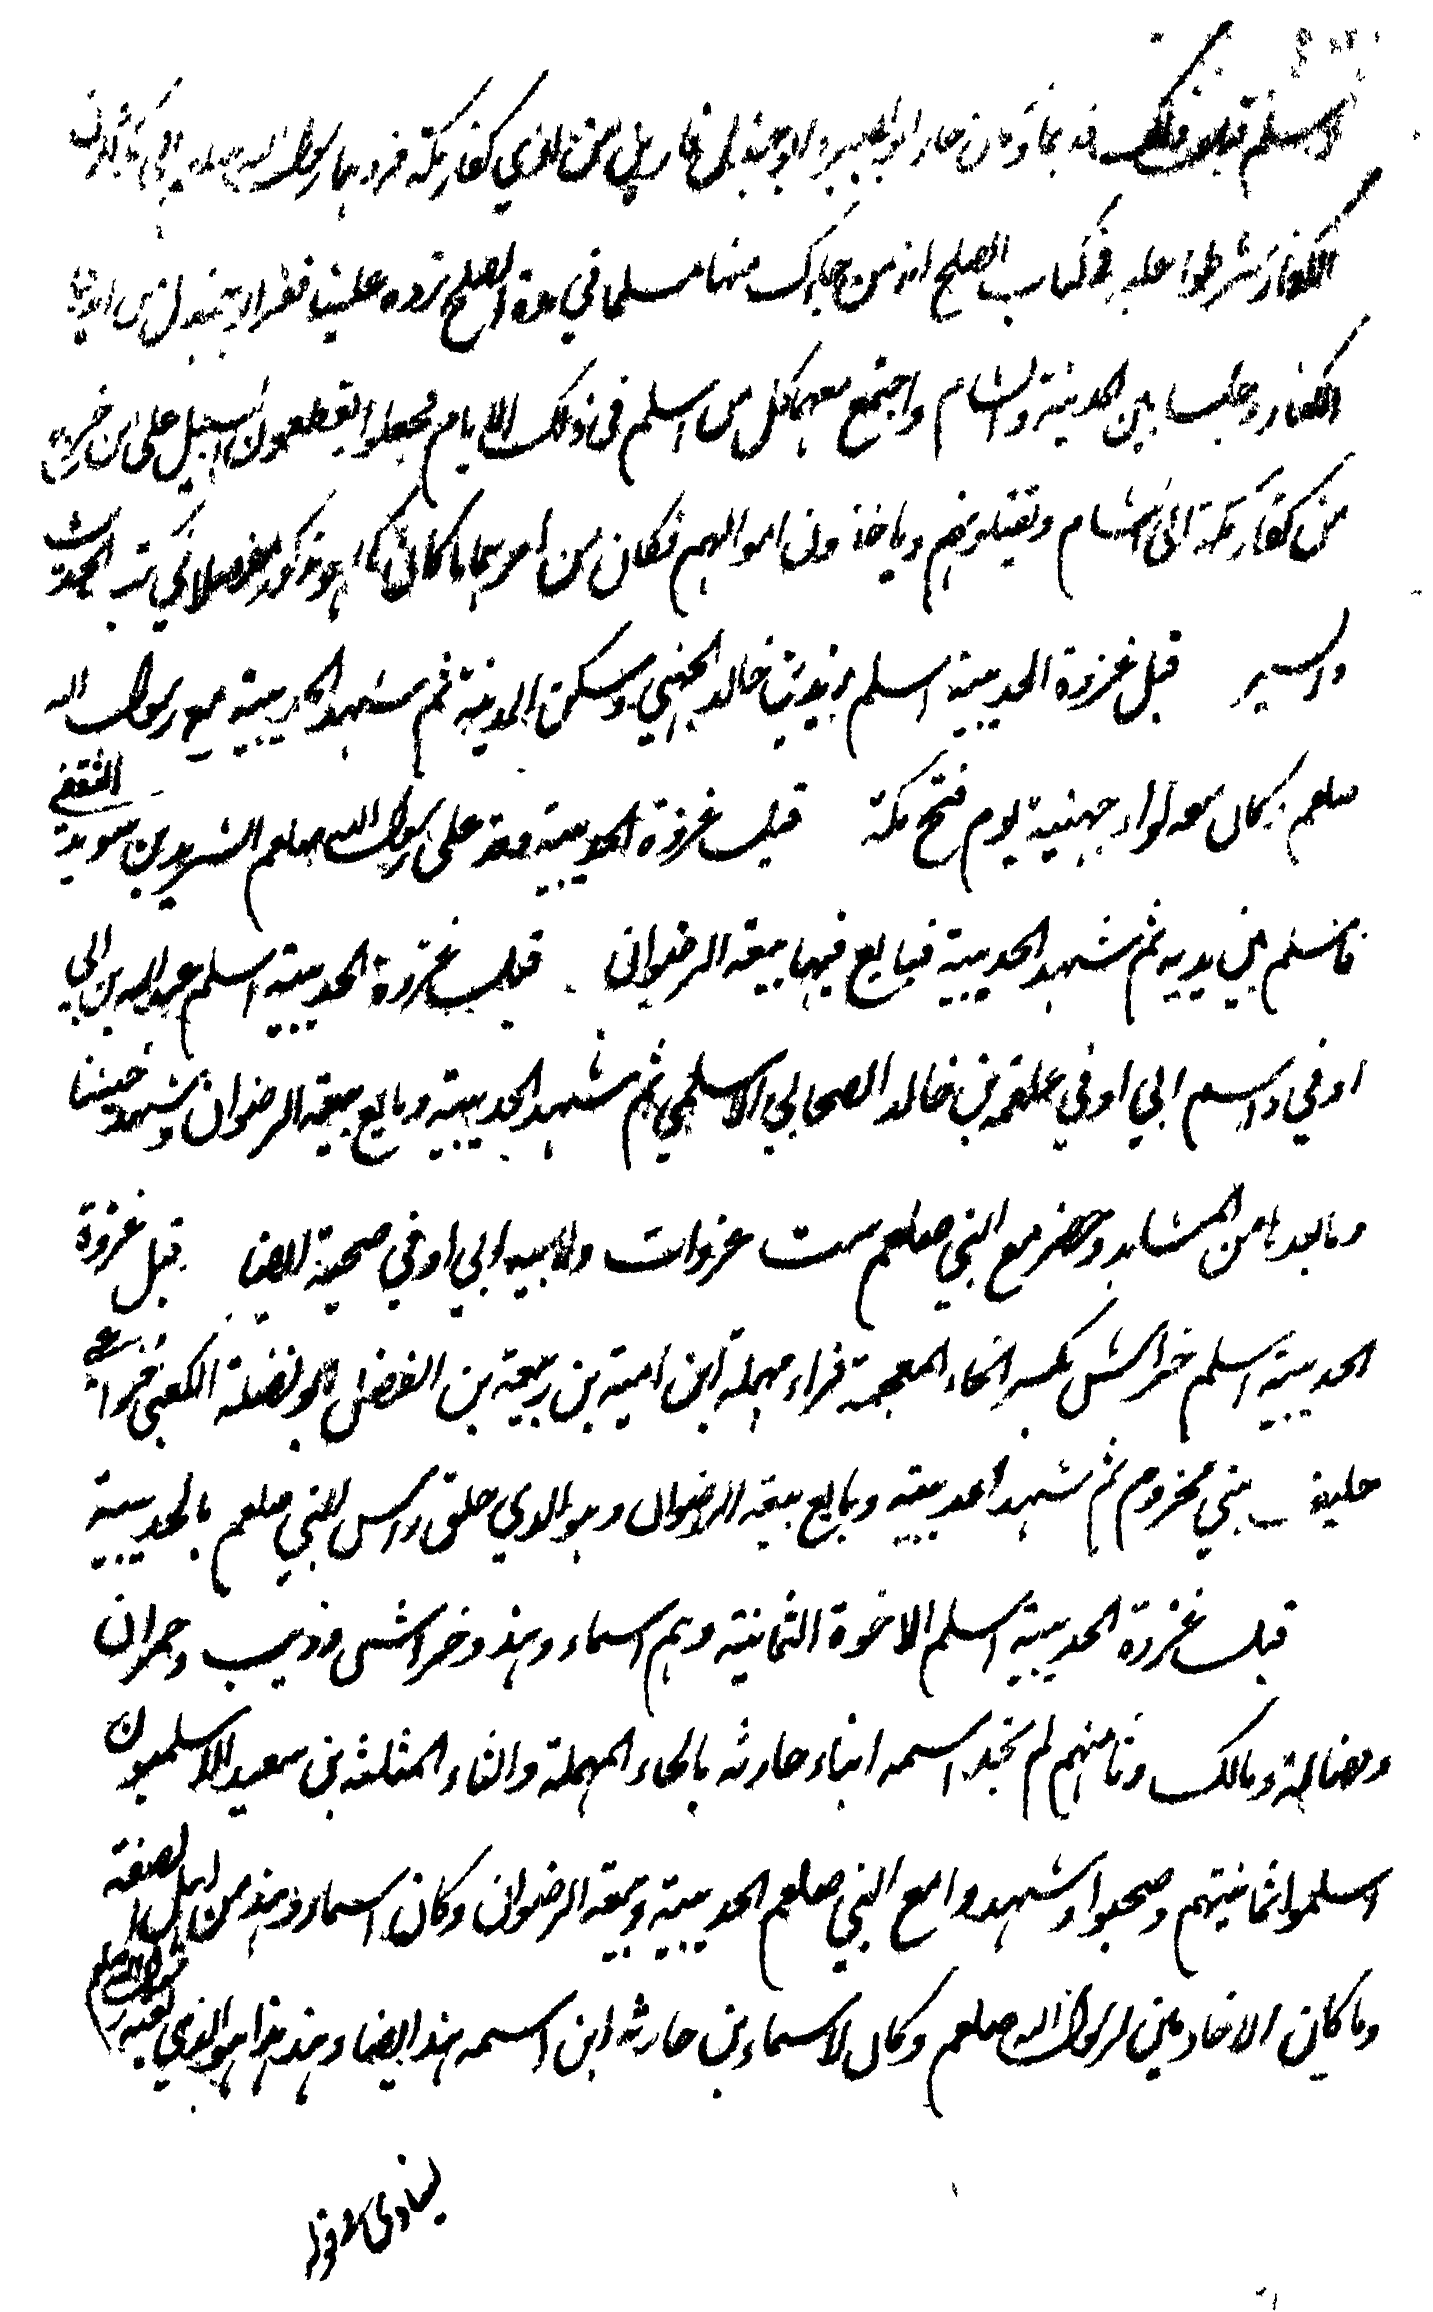 واسلم قبل ذلك ثم جاء ابو بصير وابو جندل من ايدي كفار مكة فردهما رسول الله صلعم الى مكة لان
الكفار شرطوا عليه في كتاب الصلح انه من جاءك منا مسلما في مدة الصلح ترده علينا ففرا ابو جندل من ايدي
الكفار وجلسا بين المدينة والشام واجتمع معهما كل من اسلم في ذلك الايام فجعلوا يقطعون السبيل على من خرج
من كفار مكة الى الشام ويقتلونهم وياخذون اموالهم فكان من امرهما ما كان كما هو مذكور مفصلا في كتب الحديث
والسير قبل غزوة الحديبية اسلم زيد بن خالد الجهني وسكن المدينة ثم شهد الحديبية مع رسول الله
صلعم وكان معه لواء جهينة يوم فتح مكة قبل غزوة الحديبية وفد على رسول الله صلعم الشريد بن سويد الثقفي
فاسلم بين يديه ثم شهد الحديبية فبايع فيها بيعة الرضوان قبل غزوة الحديبية اسلم عبد الله بن ابي
اوفي واسم ابي اوفي علقمة بن خالد الصحابي الاسلمي ثم شهد الحديبية وبايع بيعة الرضوان وشهد حنينا
وما بعدها من المشاهد وحضر مع النبي صلعم ست غزوات ولابيه ابي اوفي صحبة ايضا قبل غزوة
الحديبية اسلم خراش بكسر الخاء المعجمة فراء مهملة ابن امية بن ربيعة بن الفضل ابو نضلة الكعبي الخزاعي
حليف بني مخزوم ثم شهد الحديبية وبايع بيعة الرضوان وهو الذي حلق راس النبي صلعم بالحديبية
قبل غزوة الحديبية اسلم الاخوة الثمانية وهم اسماء وهند وخراش وذويب وحمران
وفضالة ومالك وثامنهم لم نجد اسمه ابناء حارثة بالحاء المهملة والثاء المثلثة بن سعيد الاسلميون
اسلموا ثمانيتهم وصحبوا وشهدوا مع النبي صلعم الحديبية وبيعة الرضوان وكان اسماء وهند من اهل الصفة
وما كانا الا خادمين لرسول الله صلعم وكان لاسماء بن حارثة ابن اسمه هند ايضا وهند هذا هو الذي بعثه رسول الله صلعم
لينادي